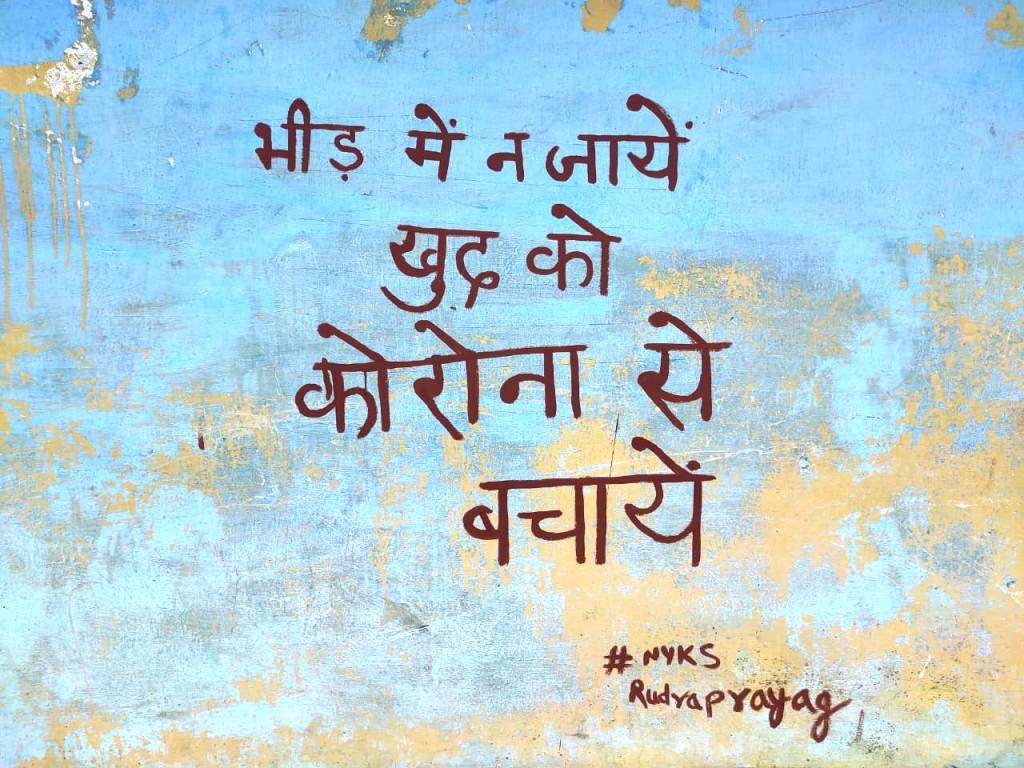 भीड़ में न जायें
खुद को
कोरोना से
बचायें
# NYKS
Rudraprayag